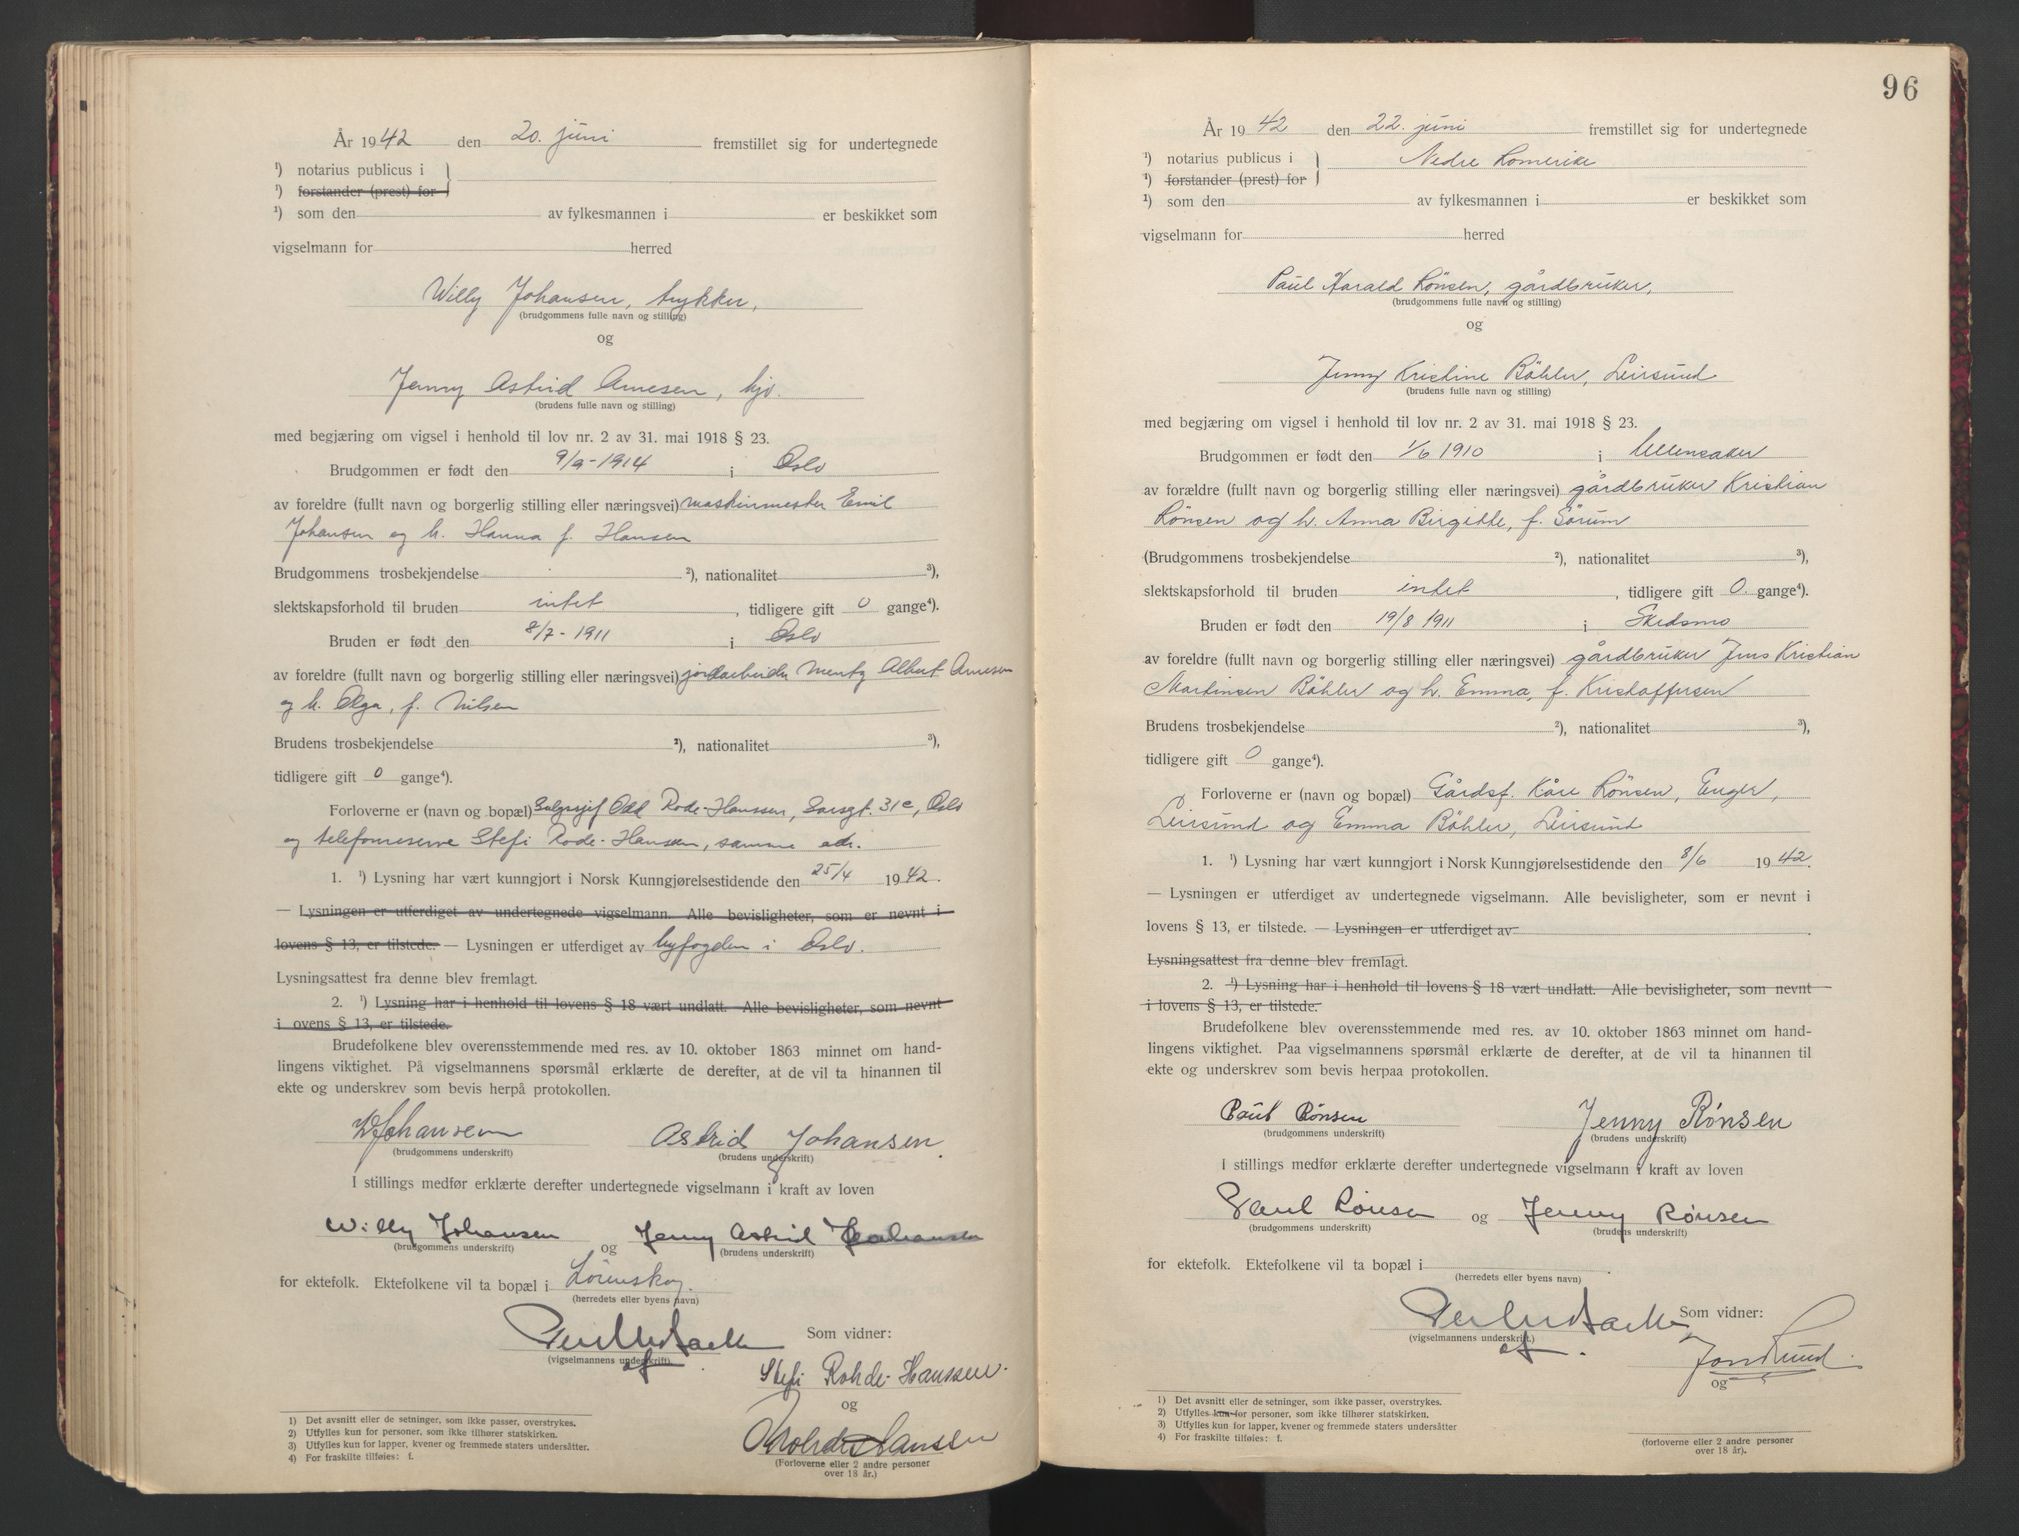 År 1942 den 20. juni fremstillet sig for undertegnede
¹) notarius publicus i
¹) forstander (prest) for
¹) som den av fylkesmannen i er beskikket som
vigselmann for herred
Willy Johansen, trykker,
(brudgommens fulle navn og stilling)
og
Jenny Astrid Arnesen, hjv.
(brudens fulle navn og stilling)
med begjæring om vigsel i henhold til lov nr. 2 av 31. mai 1918 § 23.
Brudgommen er født den 9/9-1914 i Oslo
av foreldre (fullt navn og borgerlig stilling eller næringsvei) maskinmester Emil
Johansen og h. Hanna f. Hansen
Brudgommens trosbekjendelse ²), nationalitet ³),
slektskapsforhold til bruden intet, tidligere gift 0 gange⁴).
Bruden er født den 8/7-1911 i Oslo
av foreldre (fullt navn og borgerlig stilling eller næringsvei) jordarbeider Mentz Albert Arnesen
og h. Olga, f. Nilsen
Brudens trosbekjendelse ²), nationalitet ³),
tidligere gift 0 gange⁴).
Forloverne er (navn og bopæl) Salgssjef Odd Rode-Hanssen, Sarsgt. 31c, Oslo
og telefonreserve Stefi Rode-Hanssen, samme adr.
1. ¹) Lysning har vært kunngjort i Norsk Kunngjørelsestidende den 25/4 1942.
— Lysningen er utferdiget av undertegnede vigselmann. Alle bevisligheter, som er nevnt i
lovens § 13, er tilstede. — Lysningen er utferdiget av byfogden i Oslo.
Lysningsattest fra denne blev fremlagt.
2. ¹) Lysning har i henhold til lovens § 18 vært undlatt. Alle bevisligheter, som nevnt
i ovens § 13, er tilstede.
Brudefolkene blev overensstemmende med res. av 10. oktober 1863 minnet om hand-
lingens viktighet. På vigselmannens spørsmål erklærte de derefter, at de vil ta hinannen til
ekte og underskrev som bevis herpå protokollen.
W Johansen Astrid Johansen.
(brudgommens underskrift) (brudens underskrift)
I stillings medfør erklærte derefter undertegnede vigselmann i kraft av loven
Willy Johansen og Jenny Astrid Johansen
(brudgommens underskrift) (brudens underskrift)
for ektefolk. Ektefolkene vil ta bopæl i Lørenskog.
(herredets eller byens navn)
Som vidner:
(vigselmannens underskrift)
Stefi Rohde-Hanssen.
og
O Rohde Hanssen
(Forloverne eller 2 andre personer
over 18 år.)
1) Det avsnitt eller de setninger, som ikke passer, overstrykes.
2) Utfylles kun for personer, som ikke tilhører statskirken.
3) Utfylles kun for lapper, kvener og fremmede staters undersåtter.
4) For fraskilte tilføies: f.
96
År 1942 den 22. juni fremstillet sig for undertegnede
¹) notarius publicus i Nedre Romerike
¹) forstander (prest) for
¹) som den av fylkesmannen i er beskikket som
vigselmann for herred
Paul Harald Rönsen, gårdbruker,
(brudgommens fulle navn og stilling)
og
Jenny Kristine Böhler, Leirsund
(brudens fulle navn og stilling)
med begjæring om vigsel i henhold til lov nr. 2 av 31. mai 1918 § 23.
Brudgommen er født den 1/6 1910 i Ullensaker
av forældre (fullt navn og borgerlig stilling eller næringsvei) gårdbruker Kristian
Rönsen og h. Anna Birgitte, f. Sörum
(Brudgommens trosbekjendelse ²), nationalitet ³),
slektskapsforhold til bruden intet, tidligere gift 0. gange⁴).
Bruden er født den 19/8 1911 i Skedsmo
av foreldre (fullt navn og borgerlig stilling eller næringsvei) gårdbruker Jens Kristian
Martinsen Böhler og h. Emma, f. Kristoffersen
Brudens trosbekjendelse ²), nationalitet ³),
tidligere gift 0 gange⁴).
Forloverne er (navn og bopæl) Gårdsf. Kåre Rönsen, Enger,
Leirsund og Emma Böhler, Leirsund
1. ¹) Lysning har vært kunngjort i Norsk Kunngjørelsestidende den 8/6 1942.
— Lysningen er utferdiget av undertegnede vigselmann. Alle bevisligheter, som er nevnt i
lovens § 13, er tilstede. — Lysningen er utferdiget av
Lysningsattest fra denne blev fremlagt.
2. ¹) Lysning har i henhold til lovens § 18 vært undlatt. Alle bevisligheter, som nevnt
i lovens § 13, er tilstede.
Brudefolkene blev overensstemmende med res. av 10. oktober 1863 minnet om hand-
lingens viktighet. Paa vigselmannens spørsmål erklærte de derefter, at de vil ta hinannen til
ekte og underskrev som bevis herpaa protokollen.
Paul Rönsen Jenny Rönsen
(brudgommens underskrift) (brudens underskrift)
I stillings medfør erklærte derefter undertegnede vigselmann i kraft av loven
Paul Rönsen og Jenny Rönsen
(brudgommens underskrift) (brudens underskrift)
for ektefolk. Ektefolkene vil ta bopæl i
(herredets eller byens navn)
Som vidner:
(vigselmannens underskrift.)
og
1) Det avsnitt eller de setninger, som ikke passer, overstrykes.
2) Utfylles kun for personer, som ikke tilhører statskirken.
3) Utfylles kun for lapper, kvener og fremmede staters undersåtter
4) For fraskilte tilføies: f.
(forloverne eller 2 andre personer
over 18 år).